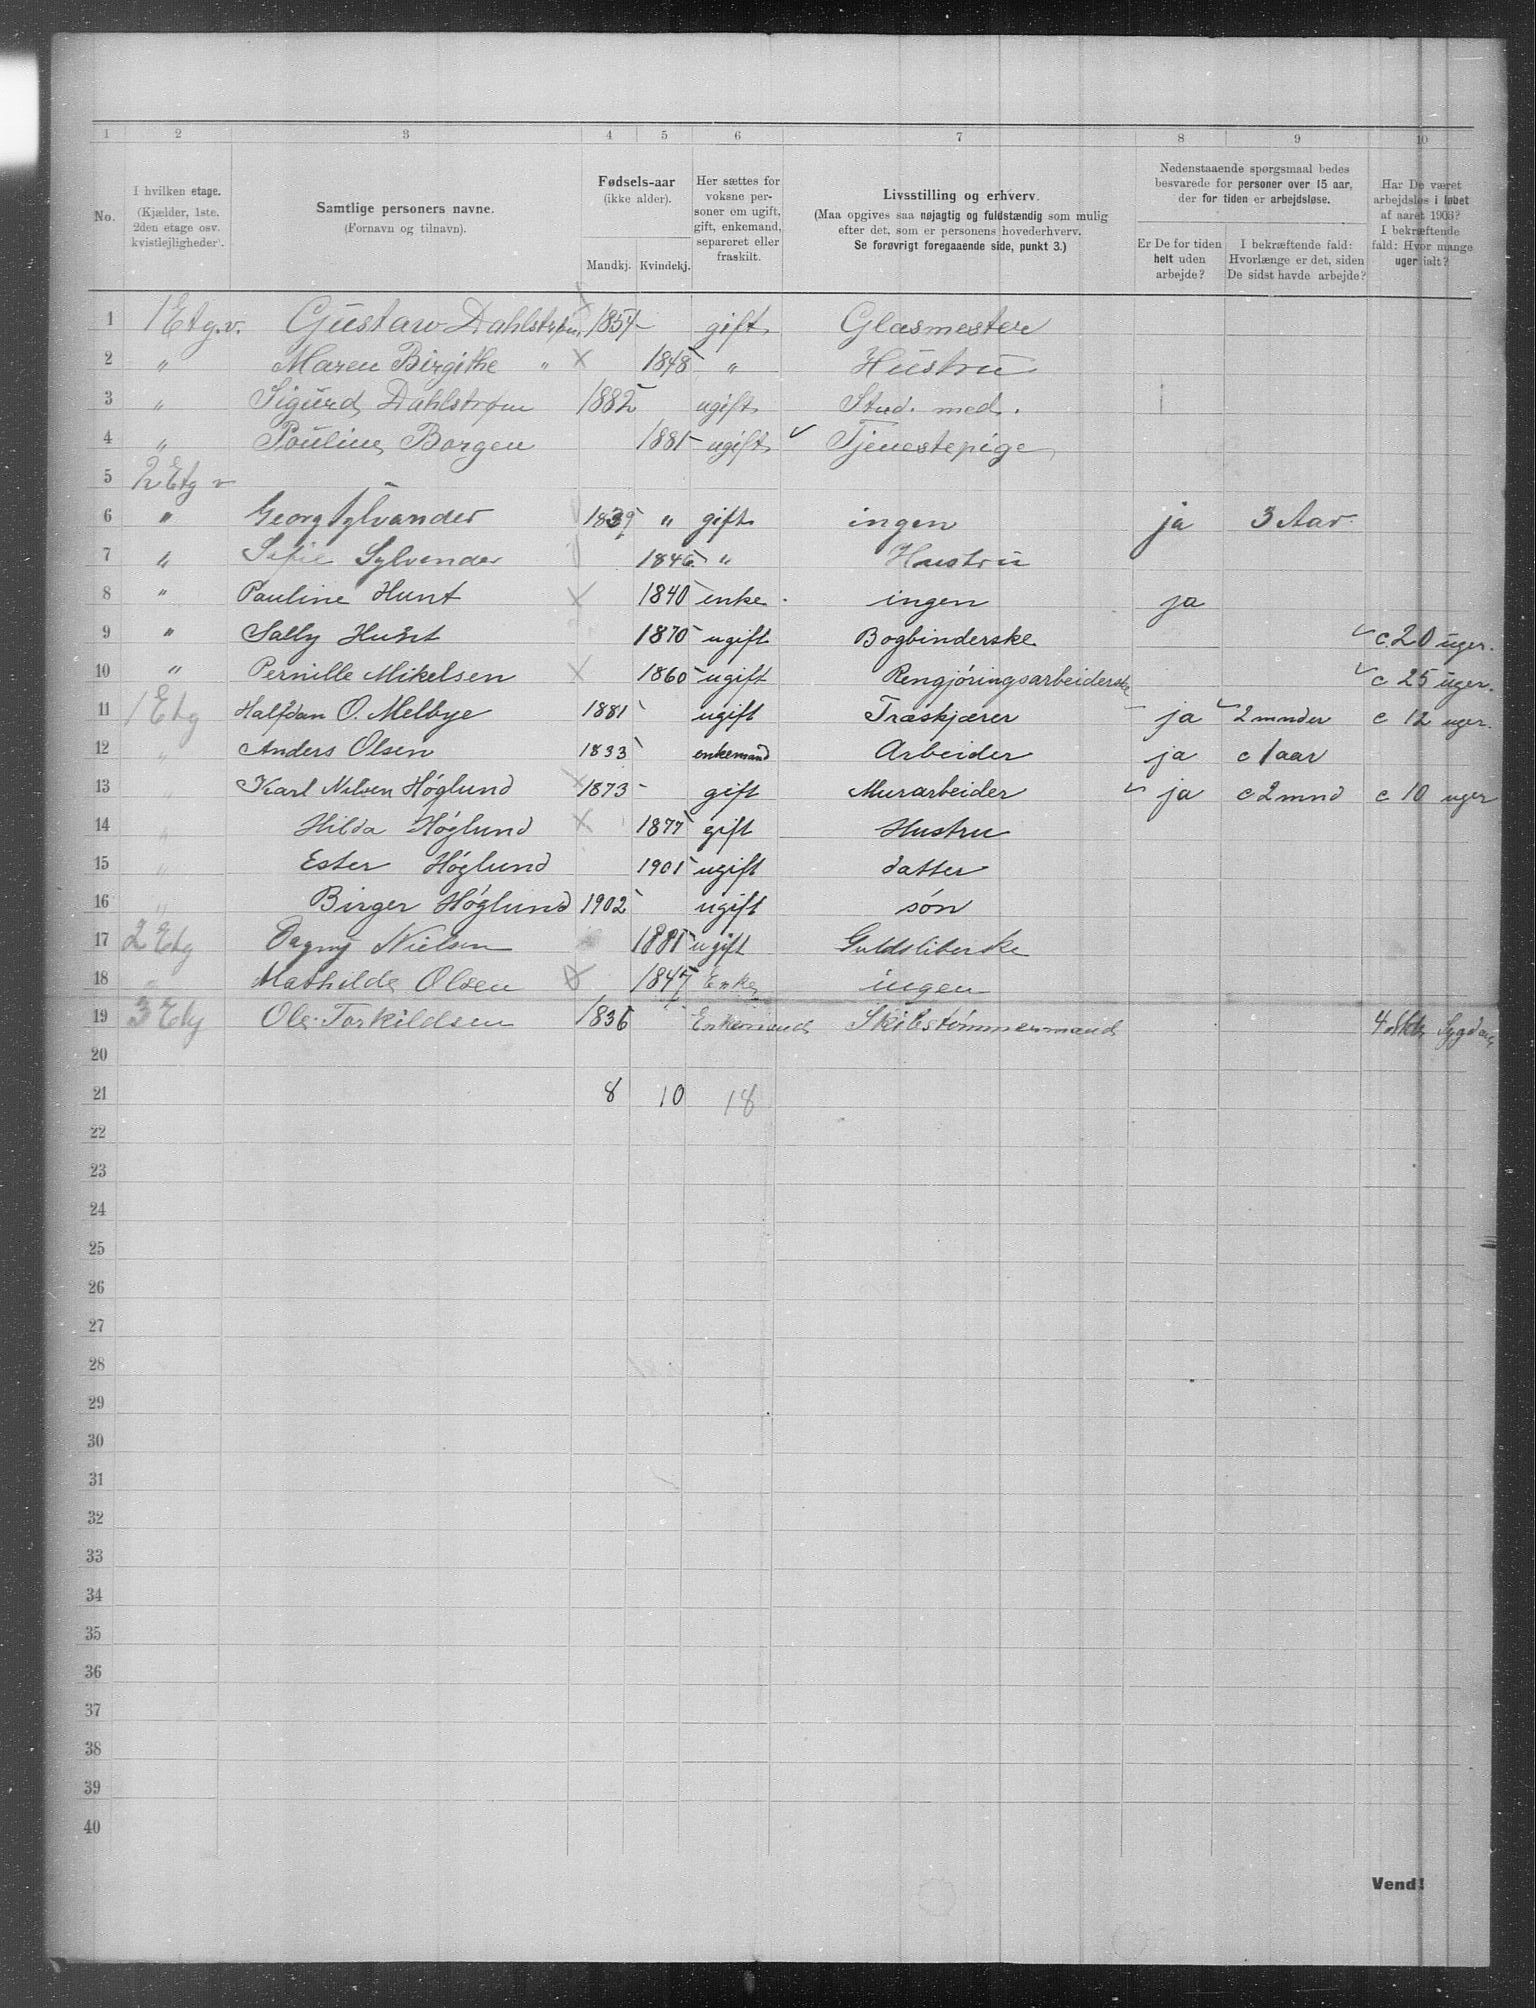 1 2 3 4 5 6 7 8 9 10
No.
I hvilken etage.
(Kjælder, 1ste,
2den etage osv.
kvistlejligheder).
Samtlige personers navne.
(Fornavn og tilnavn).
Fødsels-aar
(ikke alder).
Mandkj. Kvindekj.
Her sættes for
voksne per-
soner om ugift,
gift, enkemand,
separeret eller
fraskilt.
Livsstilling og erhverv.
(Maa opgives saa nøjagtig og fuldstændig som mulig
efter det, som er personens hovederhverv.
Se forøvrigt foregaaende side, punkt 3.)
Nedenstaaende spørgsmaal bedes
besvarede for personer over 15 aar,
der for tiden er arbejdsløse.
Er De for tiden
helt uden
arbejde?
I bekræftende fald:
Hvorlænge er det, siden
De sidst havde arbejde?
Har De været
arbejdsløs i løbet
af aaret 1903?
I bekræftende
fald: Hvor mange
uger ialt?
1 1 Etg. v. Gustav Dahlstrøm 1854 gift Glasmester
2 " Maren Birgithe " × 1848 " Hustru
3 " Sigurd Dahlstrøm 1882 ugift Stud. med.
4 " Pouline Borgen 1881 ugift ✓ Tjenestepige
5 2 Etg v
6 " Georg Sylvander 1839 " gift ingen ja 3 Aar
7 " Sofie Sylvender 1846 " Hustru
8 " Pauline Hunt × 1840 enke ingen ja
9 " Sally Hunt 1870 ugift Bogbinderske ✓ c. 20 uger.
10 " Pernille Mikelsen × 1860 ugift Rengjøringsarbeiderske ✓ c 25 uger.
11 1 Etg Halfdan O. Melbye 1881 ugift Træskjærer ja ✓ 2 mnder c 12 uger.
12 " Anders Olsen 1833 enkemand Arbeider ja c 1 aar
13 " Karl Nilsen Höglund × 1873 gift Murarbeider ✓ ja c 2 mnd c 10 uger
14 " Hilda Höglund × 1877 gift Hustru
15 " Ester Höglund 1901 ugift datter
16 " Birger Höglund 1902 ugift søn
17 2 Etg Dagny Nielsen 1881 ugift Guldsliberske
18 " Mathilde Olsen × 1847 Enke ingen
19 3 Etg Ole Torkildsen 1836 Enkemand Skibstømmermand 4 Sygdom
20
21 8 10 18
22
23
24
25
26
27
28
29
30
31
32
33
34
35
36
37
38
39
40
Vend!